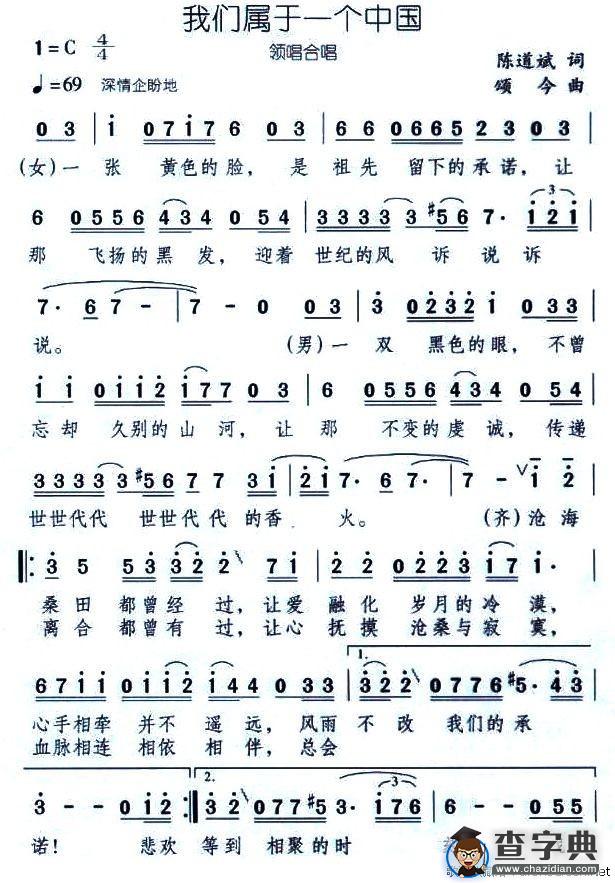 我们属于一个中国
1=C 4/4 领唱合唱 陈道斌 词
♩=69 深情企盼地 颂今 曲
0 3 | i 0 7 i 7 6 0 3 | 6 6 0 6 6 5 2 3 0 3 |
(女)一 张 黄色的脸, 是 祖先 留下的承诺, 让
6 0 5 5 6 4 3 4 0 5 4 | 3 3 3 3 3 3 #5 6 7 · i 2 i |
那 飞扬的黑 发, 迎着 世纪的风 诉 说 诉
7 · 6 7 - | 7 - 0 0 3 | 3 0 2 3 2 i 0 3 |
说。 (男)一 双 黑色的眼, 不曾
i i 0 i i 2 i 7 7 0 3 | 6 0 5 5 6 4 3 4 0 5 4 |
忘却 久别的山 河, 让 那 不变的虔 诚, 传递
3 3 3 3 3 #5 6 7 7 3 i | 2 i 7 · 6 7 · | 7 - ∨ i 2 |
世世代代 世世代代 的香 火。 (齐)沧 海
3 5 5 3 3 2 7 i | 2 0 2 2 3 i 7 i · |
桑 田 都曾经 过, 让爱 融化 岁月的冷 漠,
离 合 都曾有 过, 让心 抚摸 沧桑与寂 寞,
6 7 i i 0 i 2 i 4 4 0 3 3 | 1. 3 2 2 0 7 7 6 #5 · 4 3 |
心手相牵 并不 遥 远, 风雨 不 改 我们的 承
血脉相连 相依 相 伴, 总会
3 - - 0 i 2 | 2. 3 2 0 7 7 #3 3 · i 7 6
诺! 悲欢 等到 相聚的时
查字典
www.chazidian.com